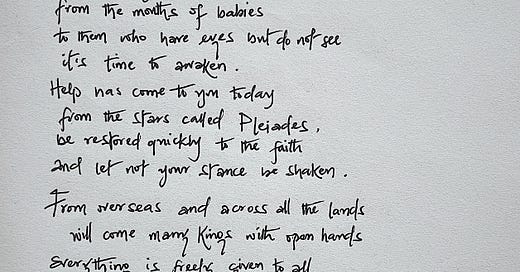 from the mouths of babies
to them who have eyes but do not see
it's time to awaken.
Help has come to you today
from the stars called Pleiades,
be restored quickly to the faith
and let not your stance be shaken.
From overseas and across all the lands
will come many Kings with open hands
Everything is freely given to all